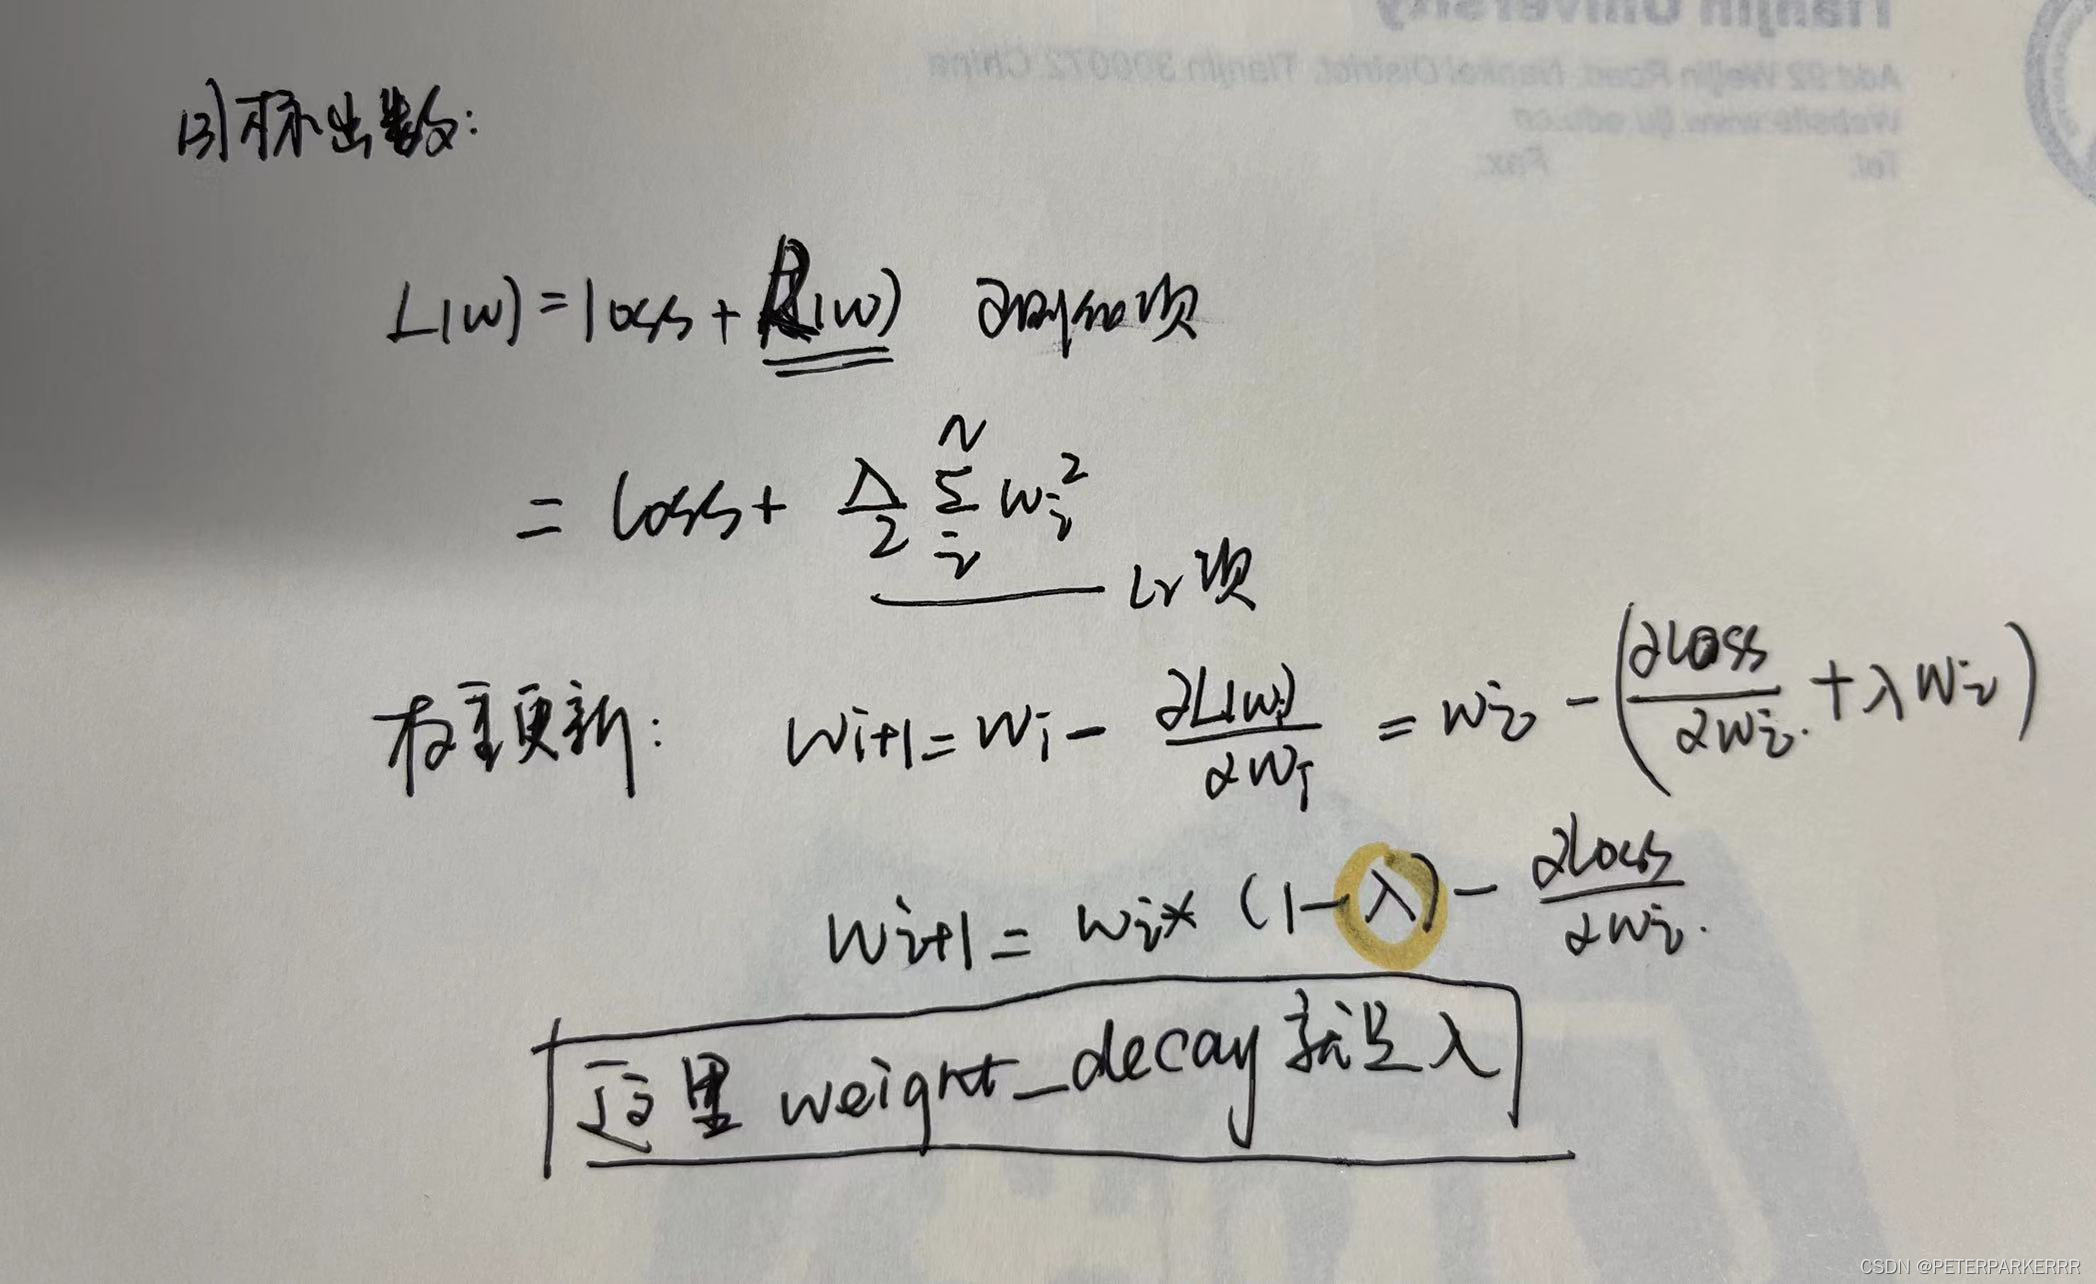 Tianjin University
Add: 92 Weijin Road, Nankai District, Tianjin 300072 China
Website: www.tju.edu.cn
Tel. Fax.
目标函数:
L(w) = loss + R(w) 项
= loss + λ/2 Σ_i^N w_i^2
L2项
权重更新: w_{i+1} = w_i - ∂L(w_i)/∂w_i = w_i - (∂loss/∂w_i + λw_i)
w_{i+1} = w_i * (1-λ) - ∂loss/∂w_i
这里 weight_decay 就是 λ
CSDN @PETERPARKERRR